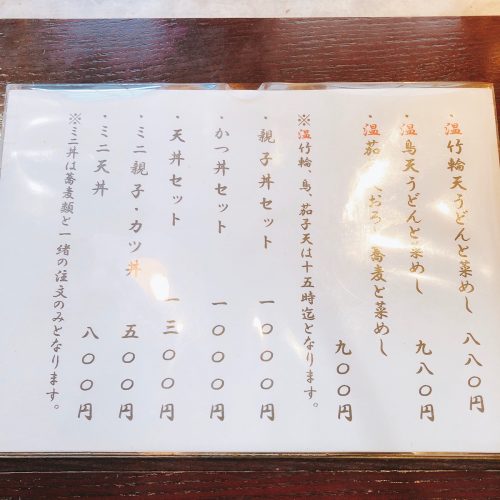 ・温竹輪天うどんと菜めし 八八〇円
・温鳥天うどんと菜めし 九八〇円
・温茄 おろし蕎麦と菜めし 九〇〇円
※温竹輪、鳥、茄子天は十五時迄となります。
・親子丼セット 一〇〇〇円
・かつ丼セット 一〇〇〇円
・天丼セット 一三〇〇円
・ミニ親子・カツ丼 五〇〇円
・ミニ天丼 八〇〇円
※ミニ丼は蕎麦類と一緒の注文のみとなります。